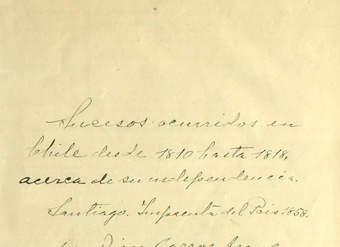 Sucesos ocurridos en
Chile desde 1810 hasta 1818,
acerca de su independencia.
Santiago. Imprenta del Pais 1858.